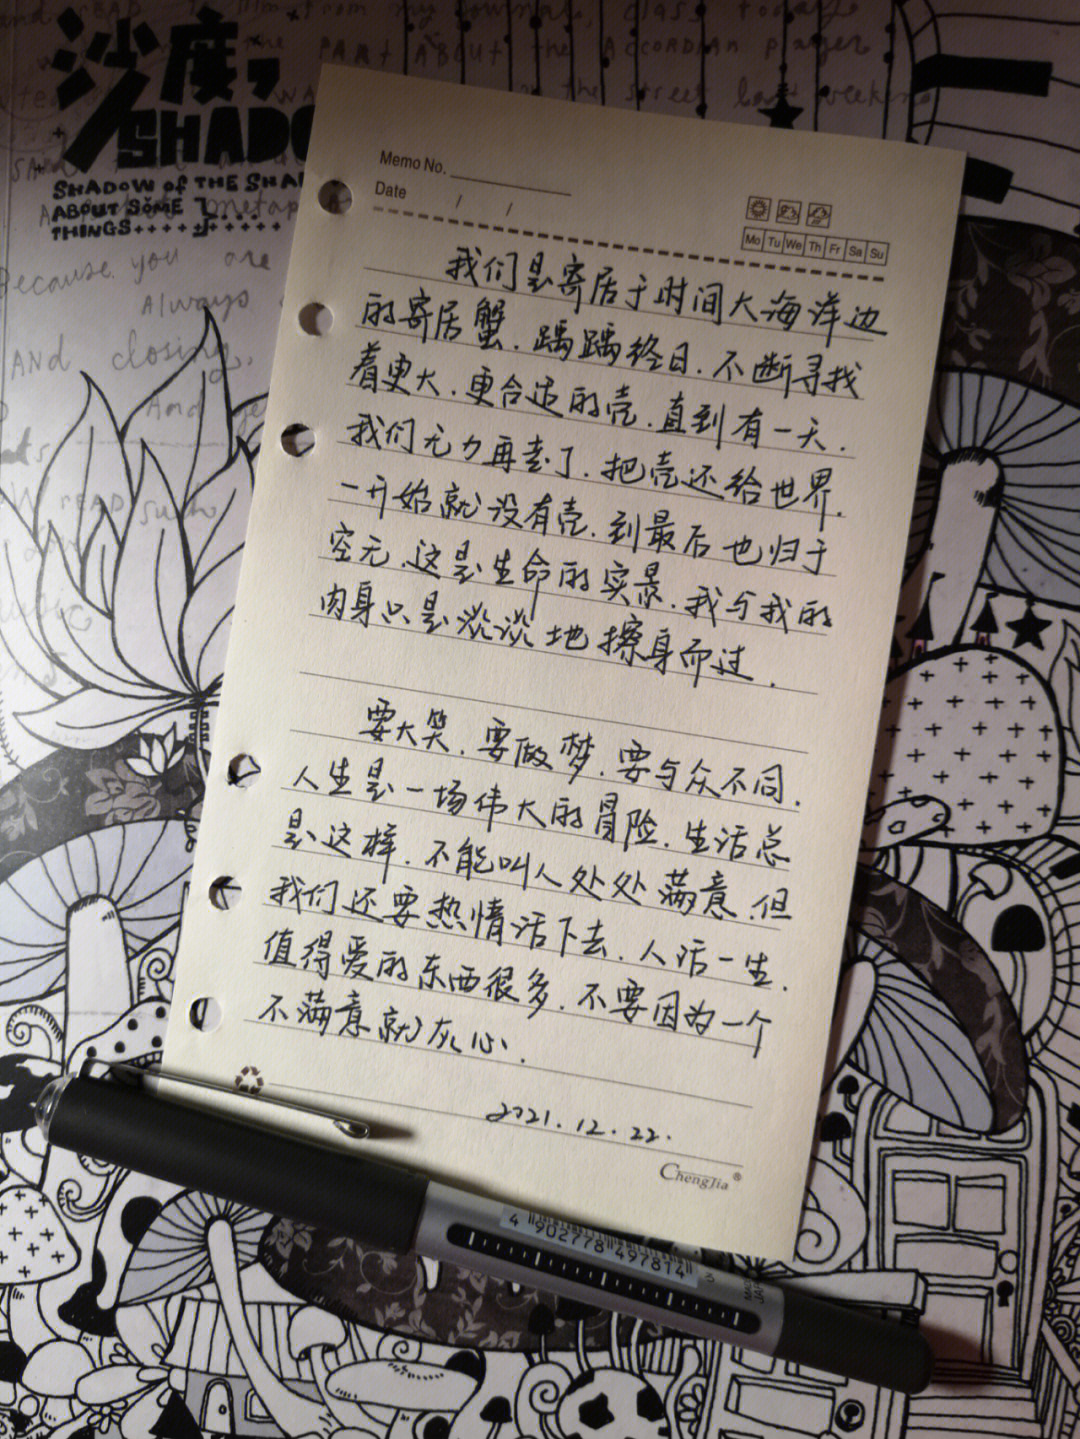 沙度,
SHADO
SHADOW of THE SHA
ABOUT SOME
THINGS
Because you are
Always
AND closing,
Memo No.
Date / /
Mo Tu We Th Fr Sa Su
我们是寄居于时间大海洋边
的寄居蟹.踽踽终日.不断寻找
着更大.更合适的壳.直到有一天.
我们无力再走了.把壳还给世界.
一开始就没有壳.到最后也归于
空无.这是生命的实景.我与我的
肉身只是淡淡地擦身而过.
要大笑.要做梦.要与众不同.
人生是一场伟大的冒险.生活总
是这样.不能叫人处处满意.但
我们还要热情活下去.人活一生.
值得爱的东西很多.不要因为一个
不满意就灰心.
2021.12.22.
ChengJia®
4 902778 497814